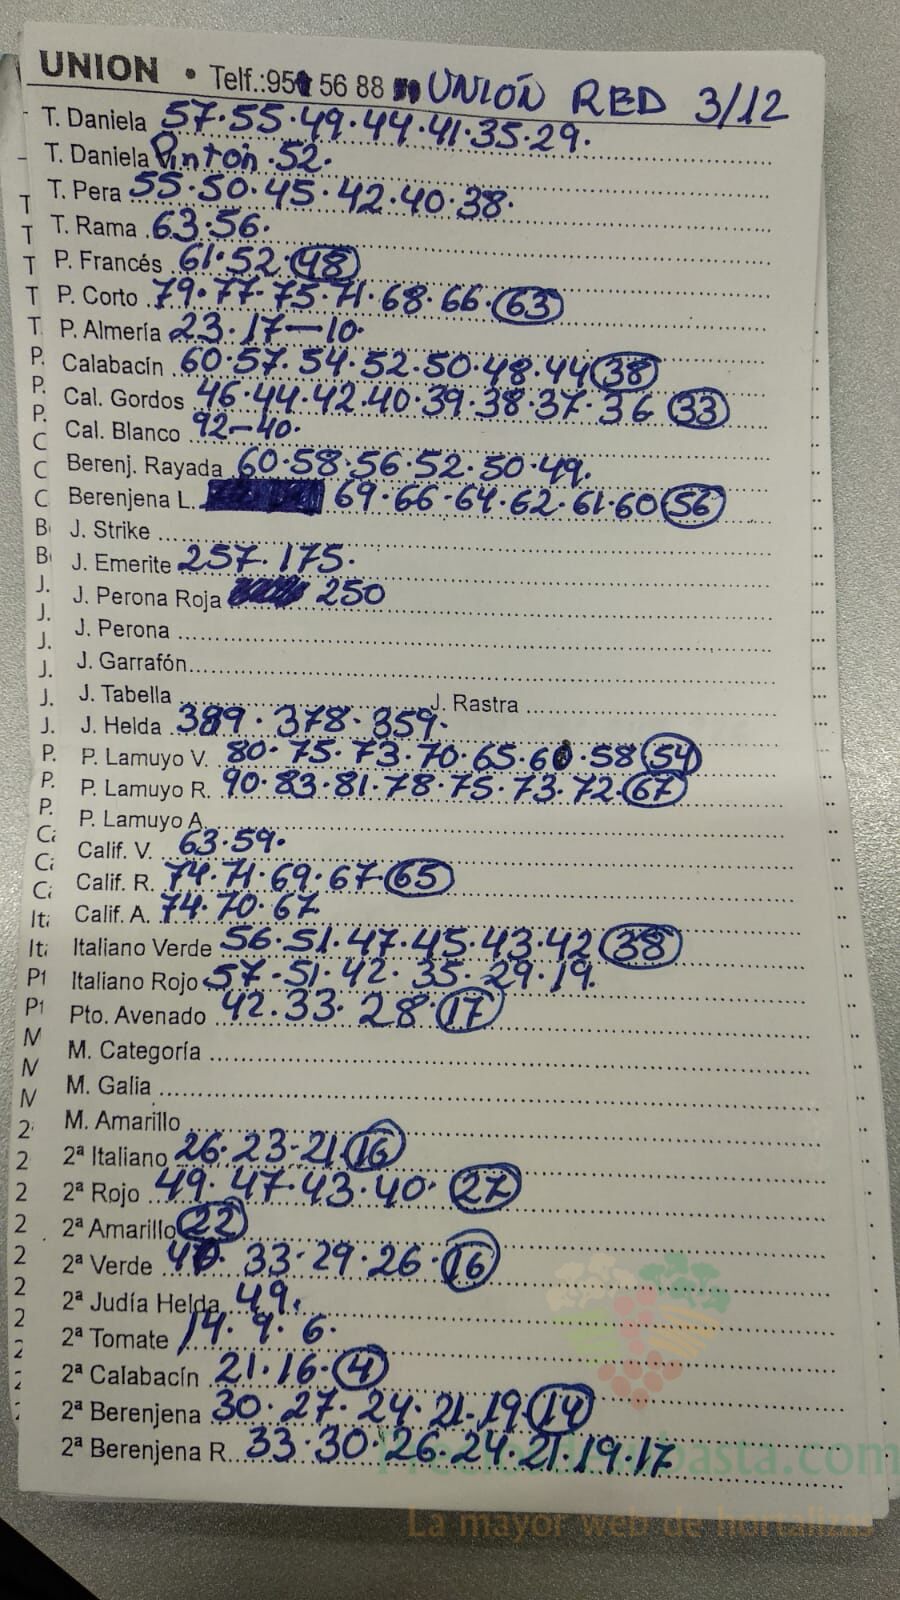 UNION • Telf.: 56 88 UNIÓN RED 3/12
T. Daniela 57·55·49·44·41·35·29.
T. Daniela Pintón·52.
T. Pera 55·50·45·42·40·38.
T. Rama 63·56.
P. Francés 61·52·48
P. Corto 79·77·75·71·68·66·63
P. Almería 23·17—10.
Calabacín 60·57·54·52·50·48·44 38
Cal. Gordos 46·44·42·40·39·38·37·36 33
Cal. Blanco 92—40.
Berenj. Rayada 60·58·56·52·50·49.
Berenjena L. 69·66·64·62·61·60 56
J. Strike
J. Emerite 257·175.
J. Perona Roja 250
J. Perona
J. Garrafón
J. Tabella J. Rastra
J. Helda 389·378·359.
P. Lamuyo V. 80·75·73·70·65·60·58 54
P. Lamuyo R. 90·83·81·78·75·73·72·67
P. Lamuyo A.
Calif. V. 63·59.
Calif. R. 74·71·69·67 65
Calif. A. 74·70·67
Italiano Verde 56·51·47·45·43·42 38
Italiano Rojo 57·51·42·35·29·19.
Pto. Avenado 42·33·28 17
M. Categoría
M. Galia
M. Amarillo
2ª Italiano 26·23·21 16
2ª Rojo 49·47·43·40· 27
2ª Amarillo 22
2ª Verde 40·33·29·26·16
2ª Judía Helda 49.
2ª Tomate 14·9·6.
2ª Calabacín 21·16·4
2ª Berenjena 30·27·24·21·19 14
2ª Berenjena R. 33·30·26·24·21·19·17
Preciosdesubasta.com
La mayor web de hortalizas